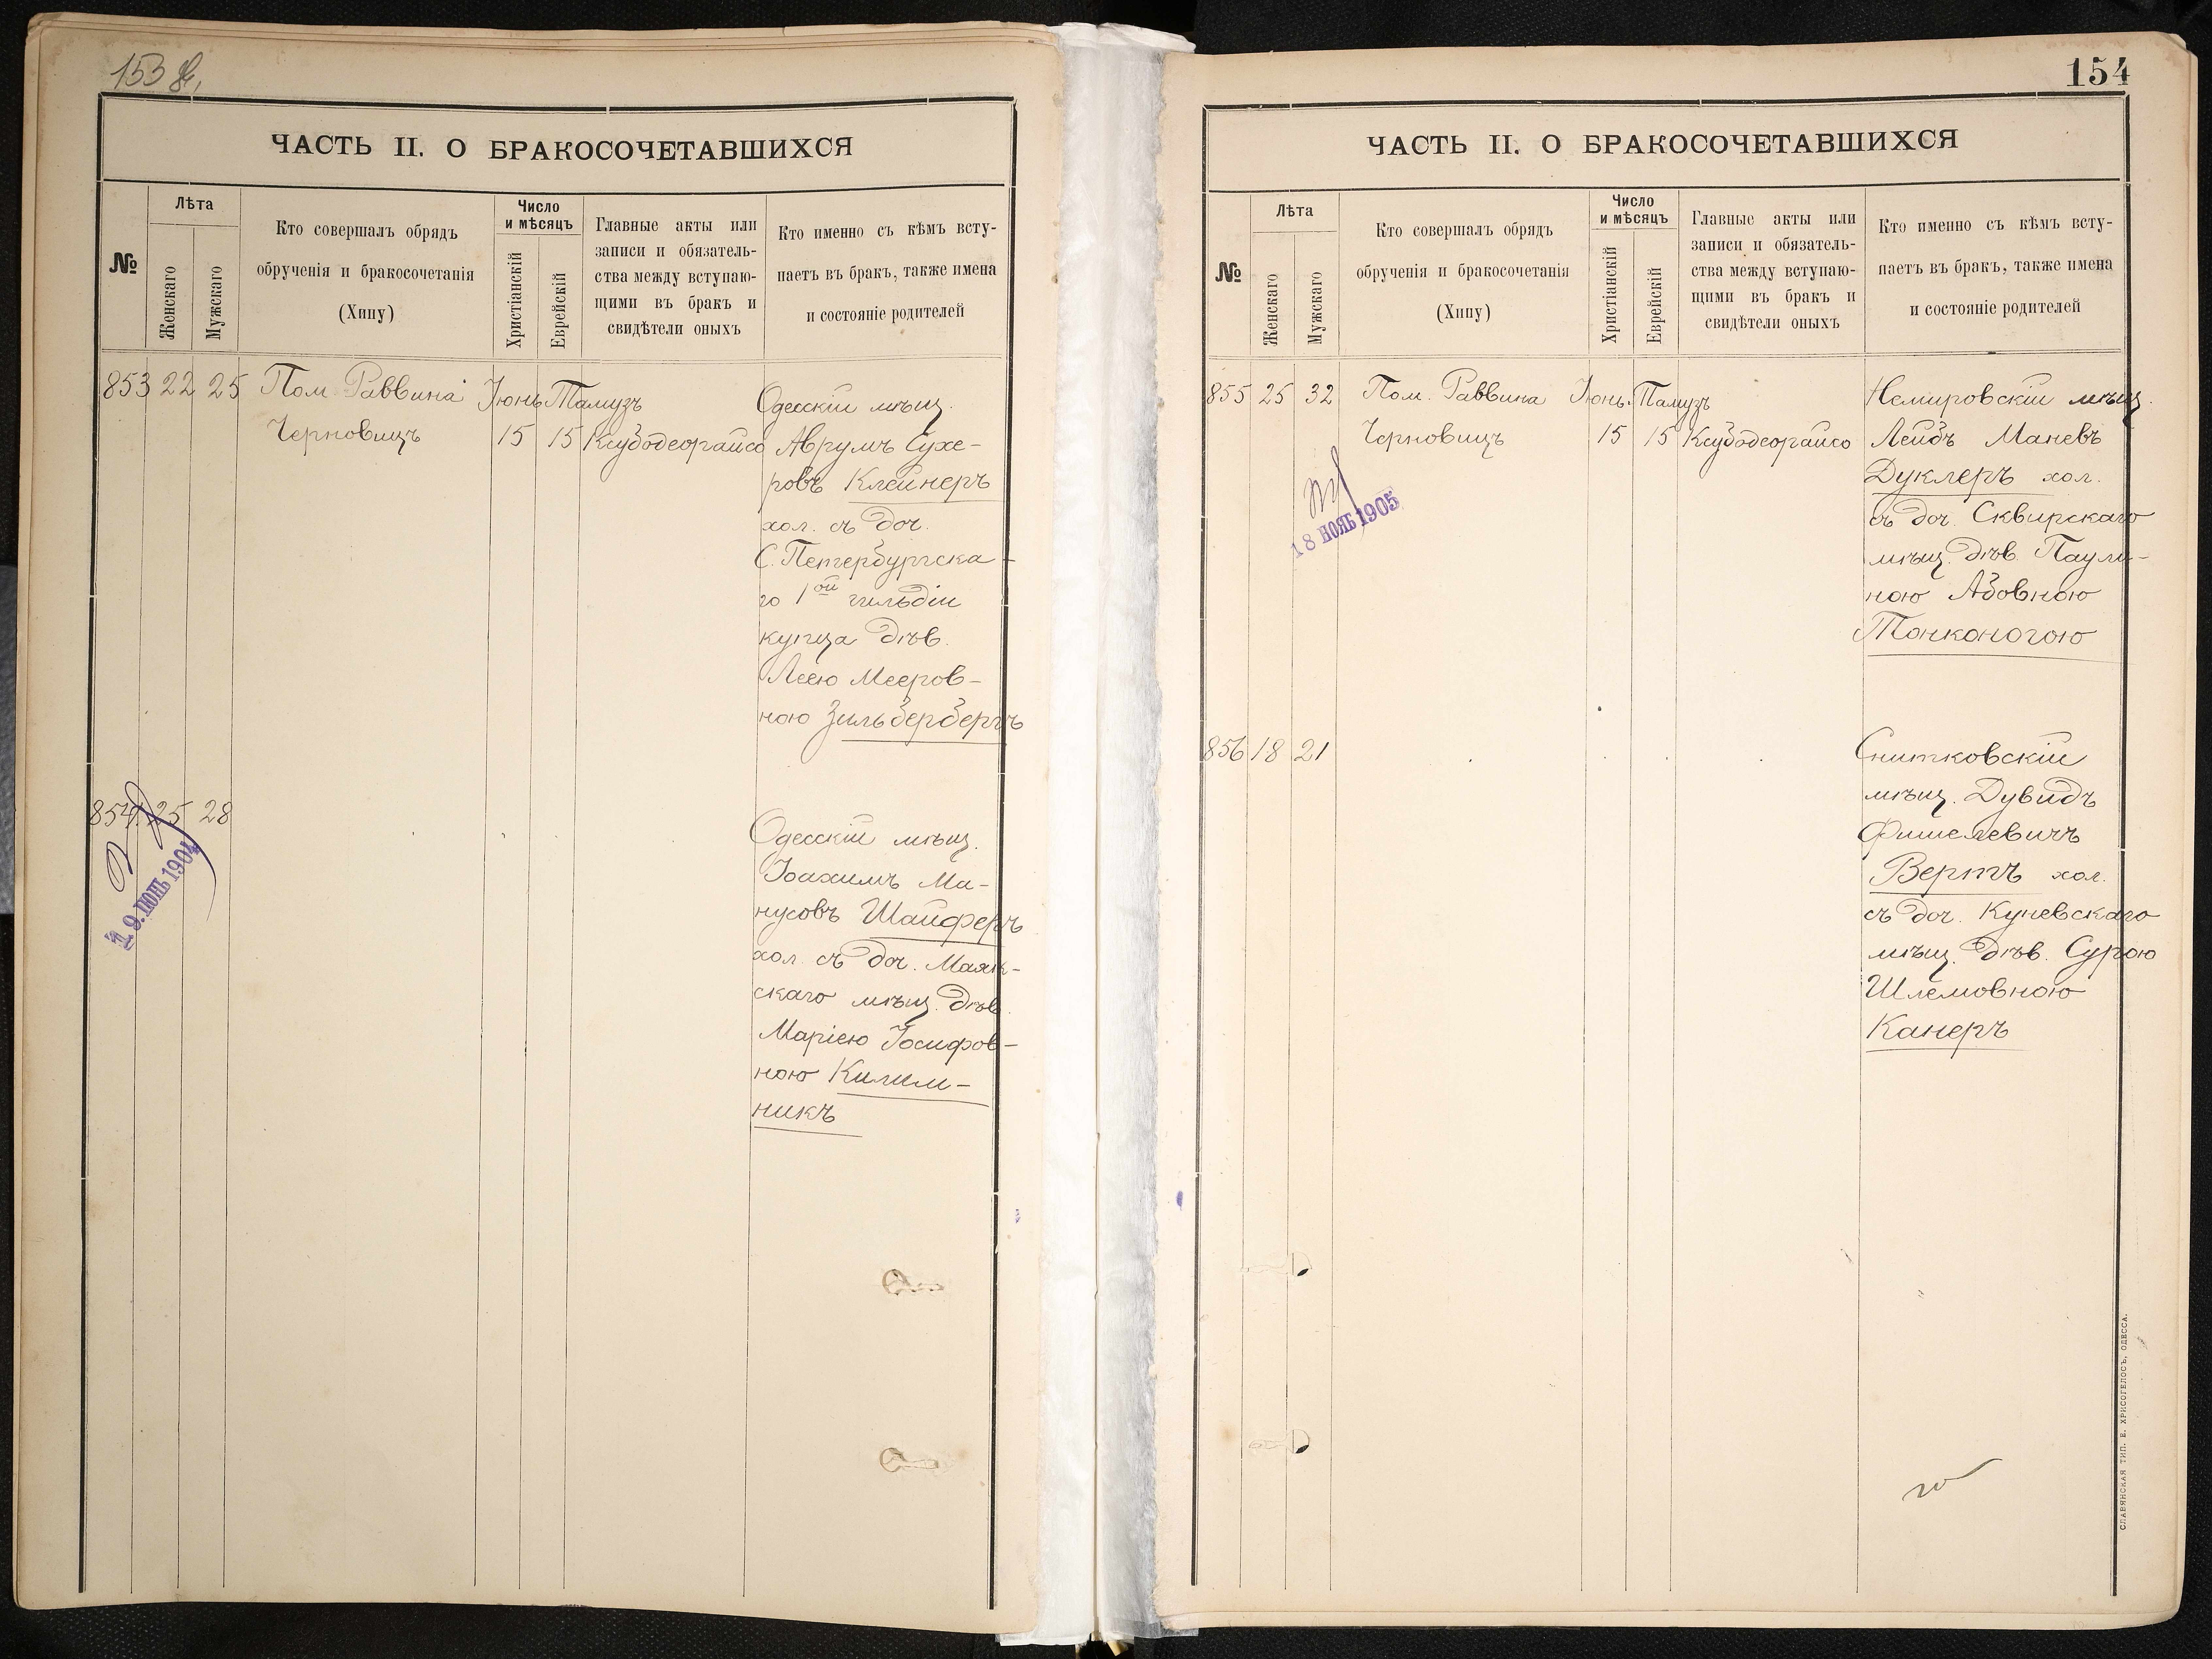 153
ЧАСТЬ II. О БРАКОСОЧЕТАВШИХСЯ
№
Лѣта
Женскаго
Мужскаго
Кто совершалъ обрядъ
обрученія и бракосочетанія
(Хипу)
Число
и мѣсяцъ
Христіанскій
Еврейскій
Главные акты или
записи и обязатель-
ства между вступаю-
щими въ бракъ и
свидѣтели оныхъ
Кто именно съ кѣмъ всту-
паетъ въ бракъ, также имена
и состояніе родителей
853 22 25 Пом. Раввина Іюнь Тамузъ
Черновицъ 15 15 Ксубодеорайсо
Одесскій мѣщ.
Аврумъ Сухе-
ровъ Клейнеръ
хол. съ доч.
С. Петербургска-
го 1ой гильдіи
купца дѣв.
Леею Мееров-
ною Зильбербергъ
854 25 28
19. ІЮНЬ 1904
Одесскій мѣщ.
Іоахимъ Ма-
нусовъ Шайферъ
хол. съ доч. Маяк-
скаго мѣщ. дѣв.
Маріею Іосифов-
ною Килим-
никъ
154
ЧАСТЬ II. О БРАКОСОЧЕТАВШИХСЯ
№
Лѣта
Женскаго
Мужскаго
Кто совершалъ обрядъ
обрученія и бракосочетанія
(Хипу)
Число
и мѣсяцъ
Христіанскій
Еврейскій
Главные акты или
записи и обязатель-
ства между вступаю-
щими въ бракъ и
свидѣтели оныхъ
Кто именно съ кѣмъ всту-
паетъ въ бракъ, также имена
и состояніе родителей
855 25 32 Пом. Раввина Іюнь. Тамузъ
Черновицъ 15 15 Ксубодеорайсо
18 НОЯБ 1905
Немировскій мѣщ.
Лейбъ Маневъ
Дуклеръ хол.
съ доч. Сквирскаго
мѣщ. дѣв. Паули-
ною Абовною
Тонконогою
856 18 21
Снитковскій
мѣщ. Дувидъ
Фишелевичъ
Вертъ хол.
съ доч. Куневскаго
мѣщ. дѣв. Сурою
Шлемовною
Канеръ
СЛАВЯНСКАЯ ТИП. Е. ХРИСОГЕЛОСЪ, ОДЕССА.